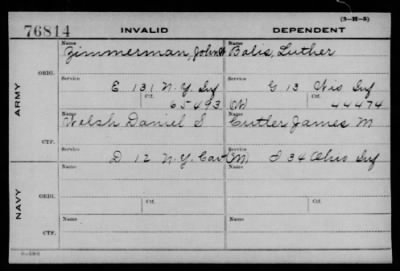 (3-H-5)
76814 INVALID DEPENDENT
ARMY
ORIG.
Name Zimmerman, John
Name Balis, Luther
Service E 131 N.Y. Inf
Service G 13 Wis Inf
Ctf. 65493
Ctf. (M) 44474
CTF.
Name Welsh Daniel S
Name Cutler James M
Service D 12 N.Y. Cav
Service (M) I 34 Ohio Inf
NAVY
ORIG.
Name
Name
Service
Ctf.
Service
Ctf.
CTF.
Name
Name